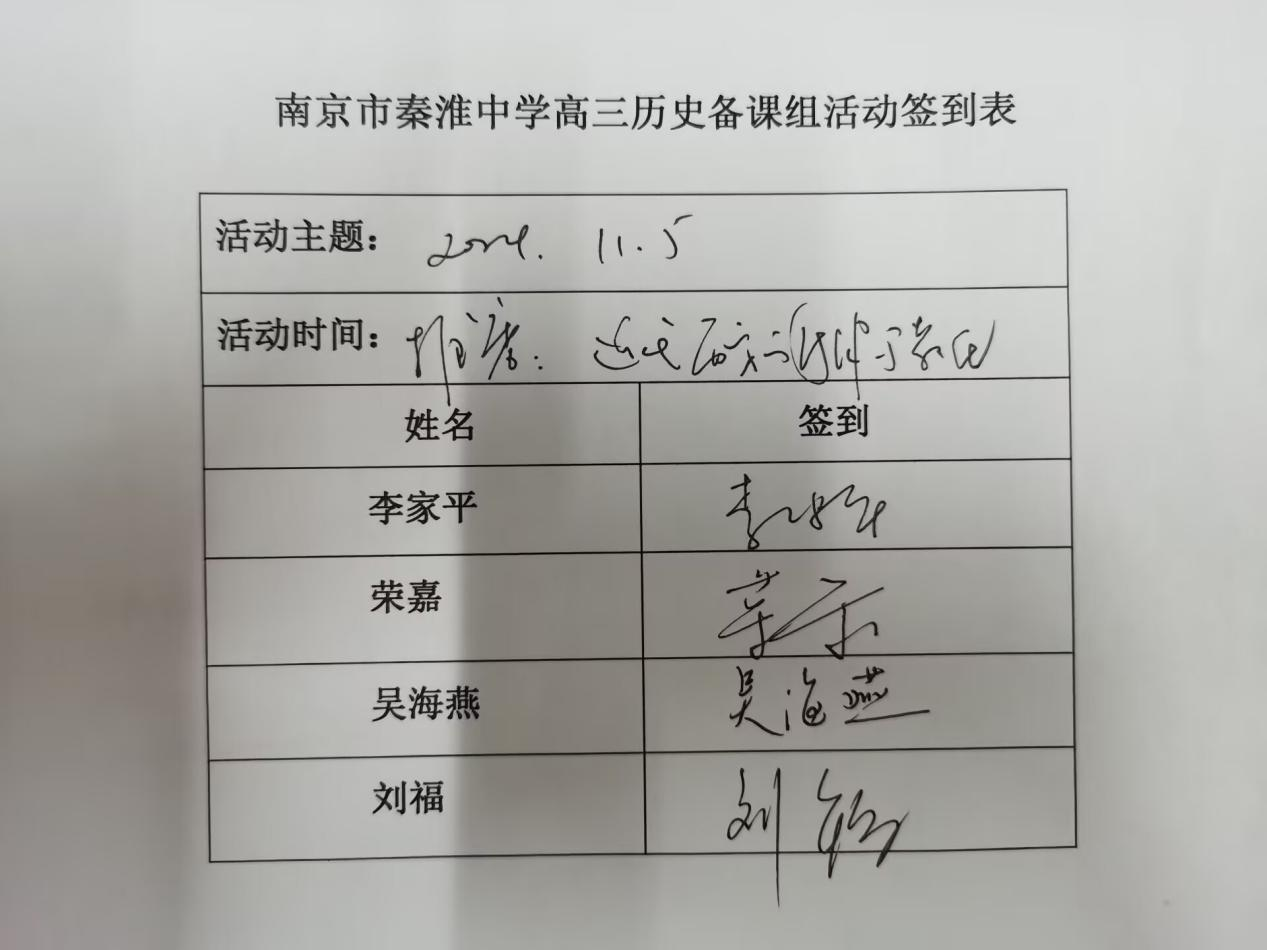 南京市秦淮中学高三历史备课组活动签到表
活动主题： 2024. 11.5
活动时间：
姓名 签到
李家平 李家平
荣嘉 荣嘉
吴海燕 吴海燕
刘福 刘福